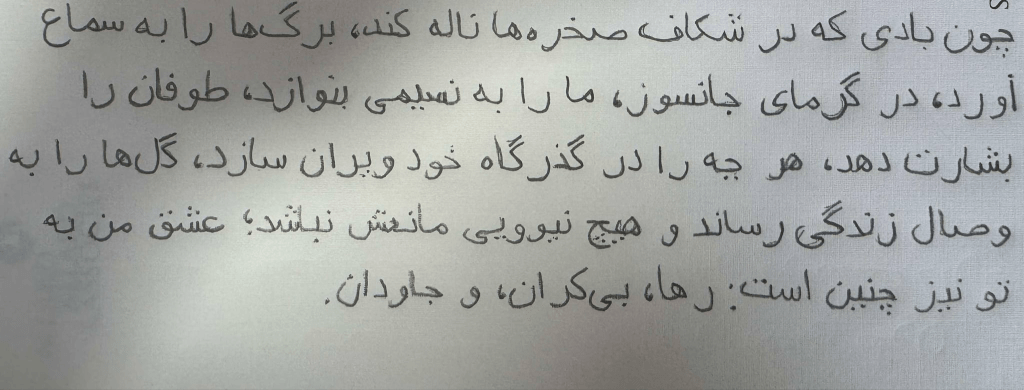 چون بادی که در شکاف صخره‌ها ناله کند، برگ‌ها را به سماع
آورد، در گرمای جانسوز، ما را به نسیمی بنوازد، طوفان را
بشارت دهد، هر چه را در گذرگاه خود ویران سازد، گل‌ها را به
وصال زندگی رساند و هیچ نیرویی مانعش نباشد؛ عشق من به
تو نیز چنین است: رها، بی‌کران، و جاودان.